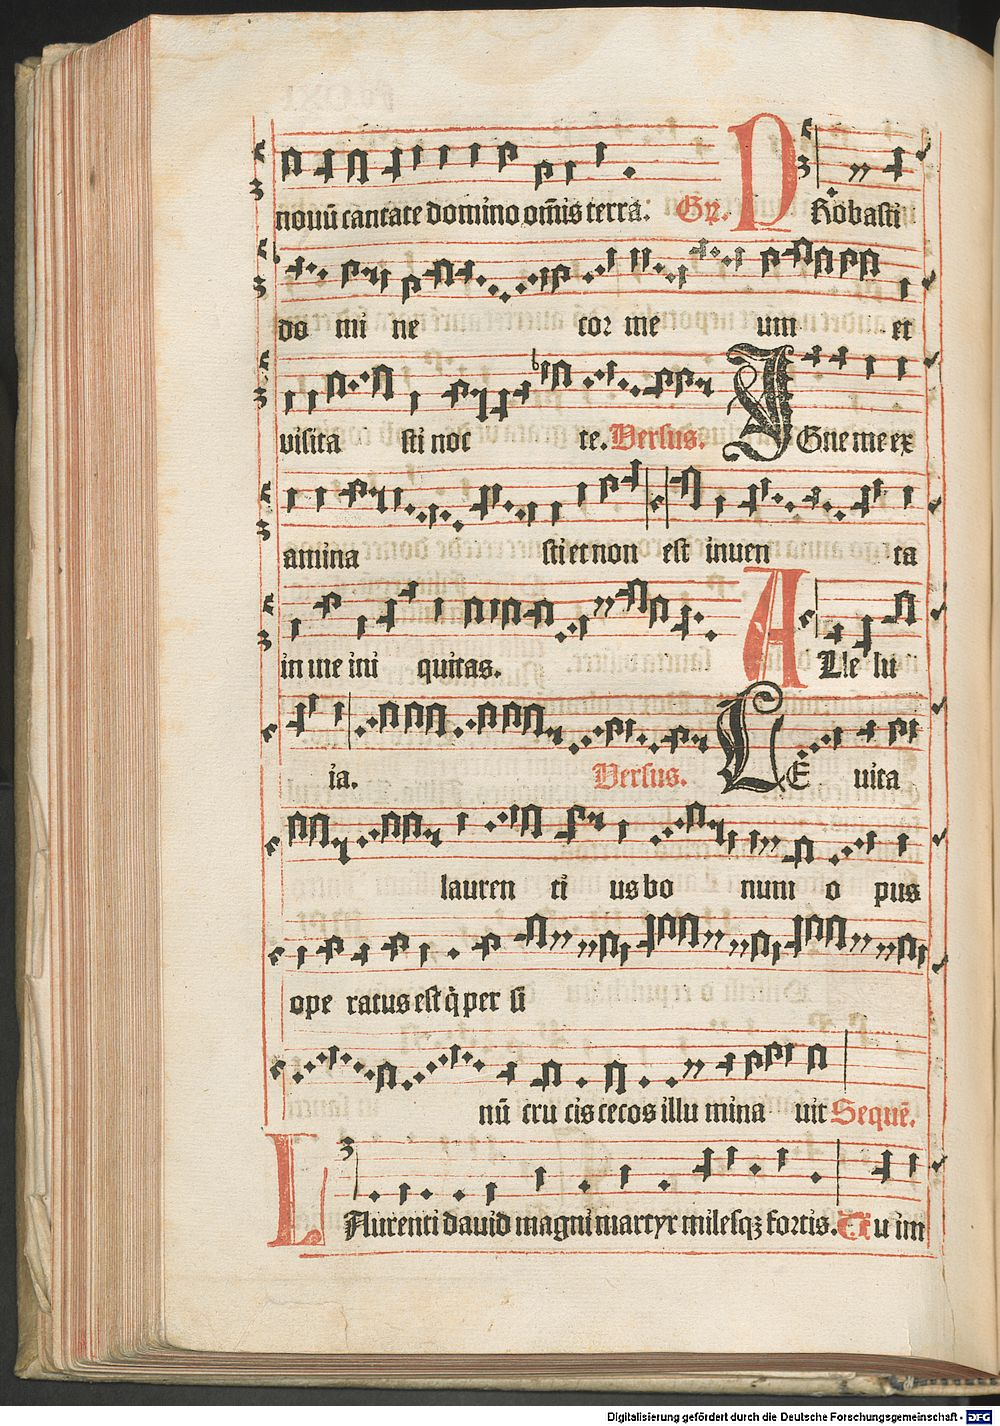 nouū cantate domino om̄is terra. Gr̄. P Robasti
do mi ne cor me um et
visita sti noc te. Versus. I Gne me ex
amina sti et non est inuen ta
in me ini quitas. A Lle lu
ia. Versus. L E uita
lauren ti us bo num o pus
ope ratus est q̇ per si
nū cru cis cecos illu mina uit Sequē.
L Aurenti dauid magni martyr milesqꝫ fortis. Tu im
Digitalisierung gefördert durch die Deutsche Forschungsgemeinschaft - DFG